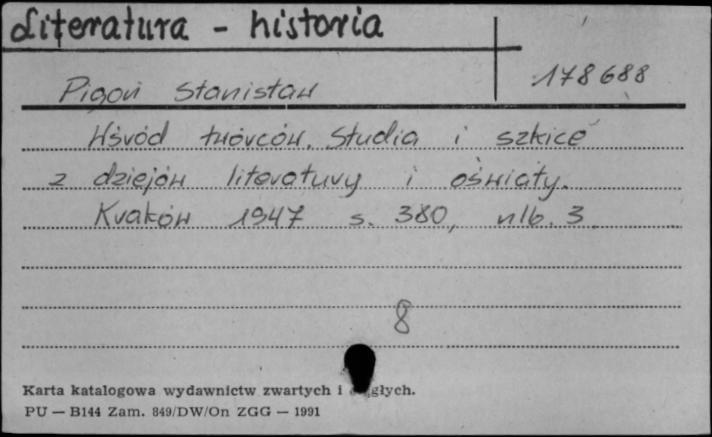 Literatura - historia
178688
Pigoń Stanisław
Wśród twórców. Studia i szkice
z dziejów literatury i oświaty.
Kraków 1947 s. 380, nlb. 3
8
Karta katalogowa wydawnictw zwartych i
PU — B144 Zam. 849/DW/On ZGG — 1991